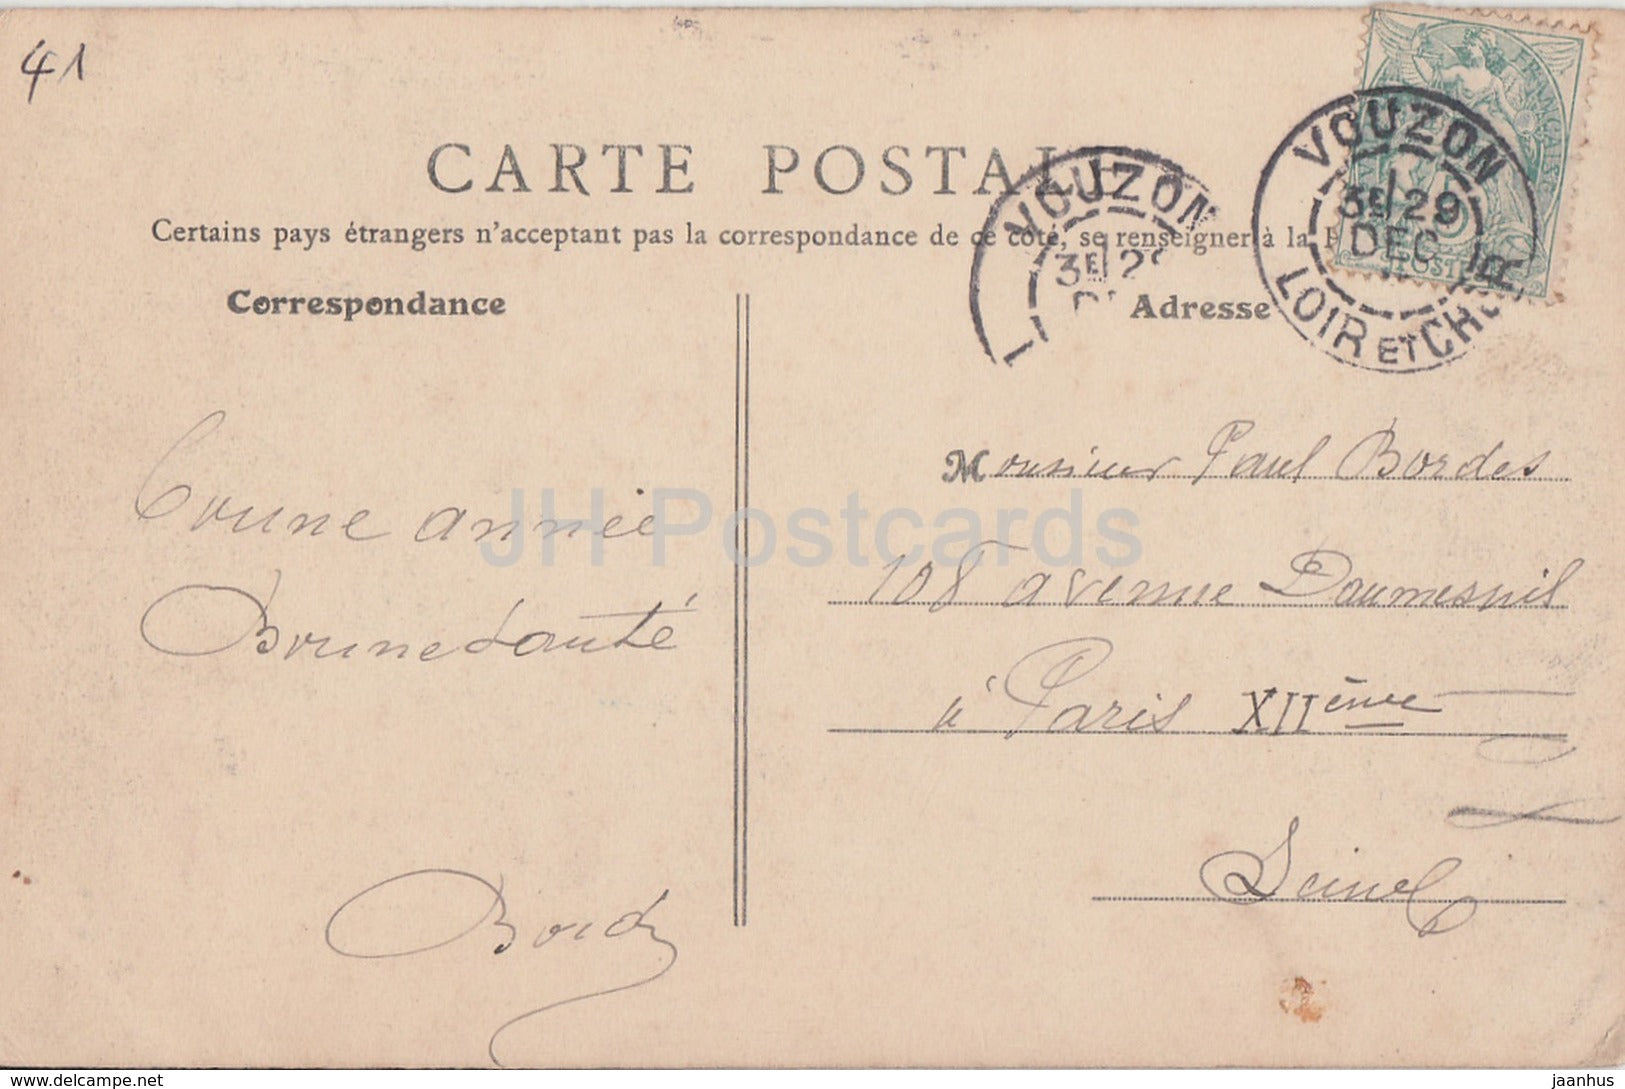 41
CARTE POSTALE
Certains pays étrangers n'acceptant pas la correspondance de ce côté, se renseigner à la P
Correspondance
Adresse
VOUZON
3E 29
DEC
LOIR ET CHER
VOUZON
3E 2
FRANÇAISE
POSTE
Monsieur Paul Bordes
108 avenue Daumesnil
à Paris XIIème
Seine
Bonne année
Bonne santé
JH Postcards
delcampe.net
jaanhus